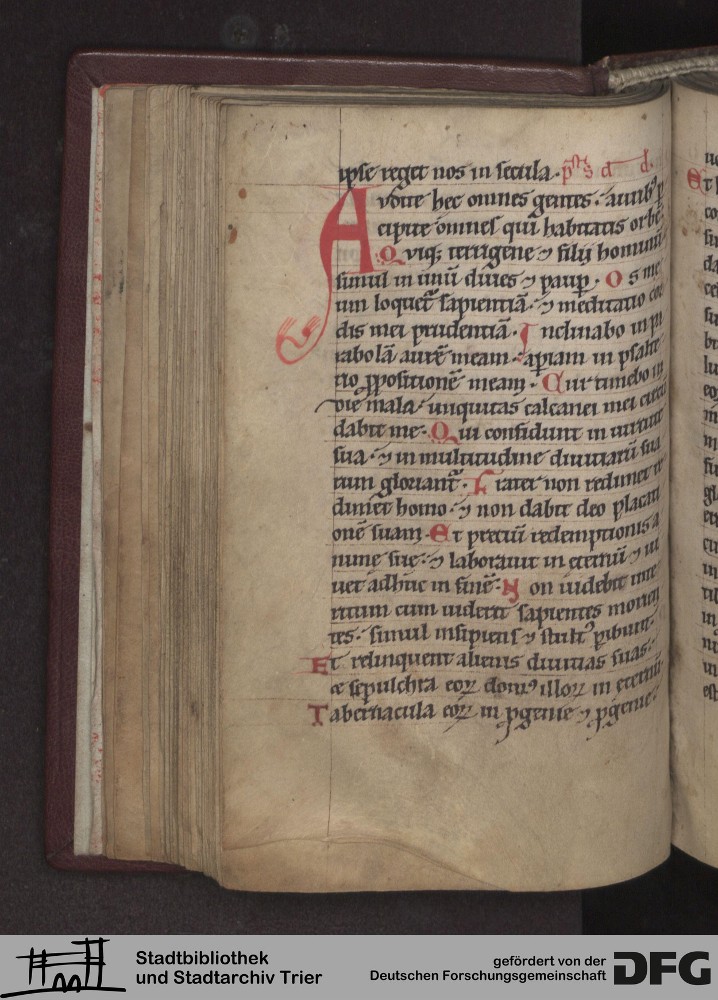 ipse reget nos in secula. ps̄ d d.
Avdite hec omnes gentes. aurib᷒ p
cipite omnes qui habitatis orbē.
Qviq; terrigene ⁊ filij hominū
simul in unū diues ⁊ paup̄. Os me
um loquet̄ sapientiā. ⁊ meditatio cor
dis mei prudentiā. Inclinabo in pa
rabolā aurē meam. apiam in psalte
rio ꝓpositionē meam. Cur timebo in
die mala. iniquitas calcanei mei circū
dabit me. Qui confidunt in uirtute
sua. ⁊ in multitudine diuitiarū sua
rum gloriant̄. Frater non redimet re
dimet homo. ⁊ non dabit deo placati
onē suam. Et preciū redemptionis a
nime sue. ⁊ laborauit in eternū ⁊ ui
uet adhuc in finē. Non uidebit inte
ritum cum uiderit sapientes morien
tes. simul insipiens ⁊ stult᷒ ꝑibunt.
Et relinquent alienis diuitias suas.
et sepulchra eoꝝ dom᷒ illoꝝ in eternū
Tabernacula eoꝝ in ꝓgenie ⁊ ꝓgenie.
Stadtbibliothek
und Stadtarchiv Trier
gefördert von der
Deutschen Forschungsgemeinschaft
DFG